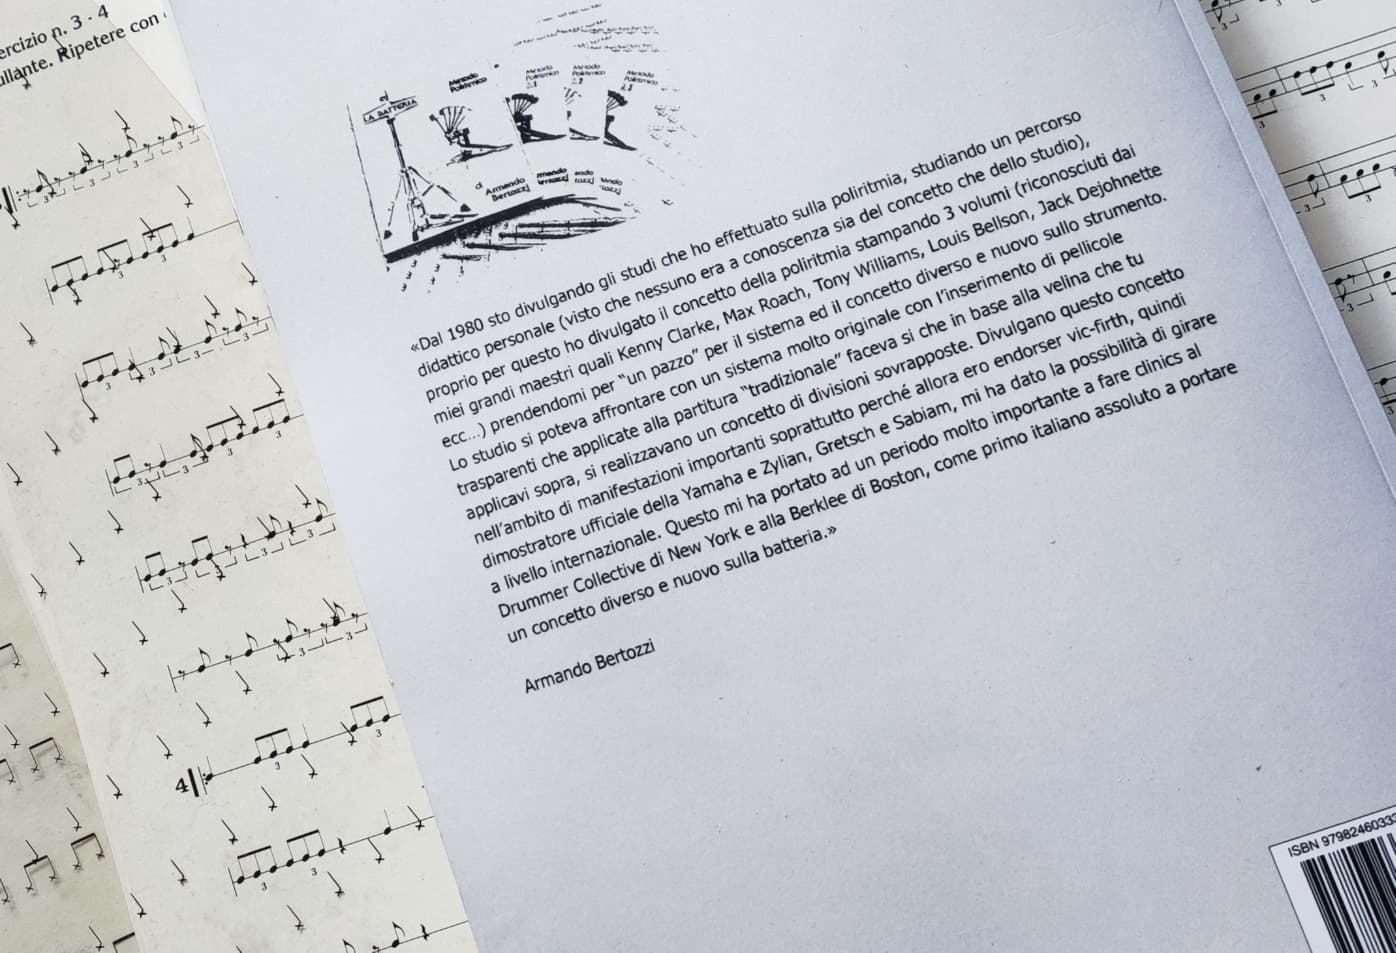 ercizio n. 3 - 4
ullante. Ripetere con
LA BATTERIA
Metodo
Poliritmico
Metodo
Poliritmico
Metodo
Poliritmico
Metodo
Poliritmico
di Armando
Bertozzi
«Dal 1980 sto divulgando gli studi che ho effettuato sulla poliritmia, studiando un percorso
didattico personale (visto che nessuno era a conoscenza sia del concetto che dello studio),
proprio per questo ho divulgato il concetto della poliritmia stampando 3 volumi (riconosciuti dai
miei grandi maestri quali Kenny Clarke, Max Roach, Tony Williams, Louis Bellson, Jack Dejohnette
ecc...) prendendomi per “un pazzo” per il sistema ed il concetto diverso e nuovo sullo strumento.
Lo studio si poteva affrontare con un sistema molto originale con l’inserimento di pellicole
trasparenti che applicate alla partitura “tradizionale” faceva si che in base alla velina che tu
applicavi sopra, si realizzavano un concetto di divisioni sovrapposte. Divulgano questo concetto
nell’ambito di manifestazioni importanti soprattutto perché allora ero endorser vic-firth, quindi
dimostratore ufficiale della Yamaha e Zylian, Gretsch e Sabiam, mi ha dato la possibilità di girare
a livello internazionale. Questo mi ha portato ad un periodo molto importante a fare clinics al
Drummer Collective di New York e alla Berklee di Boston, come primo italiano assoluto a portare
un concetto diverso e nuovo sulla batteria.»
Armando Bertozzi
4
ISBN 97982460333